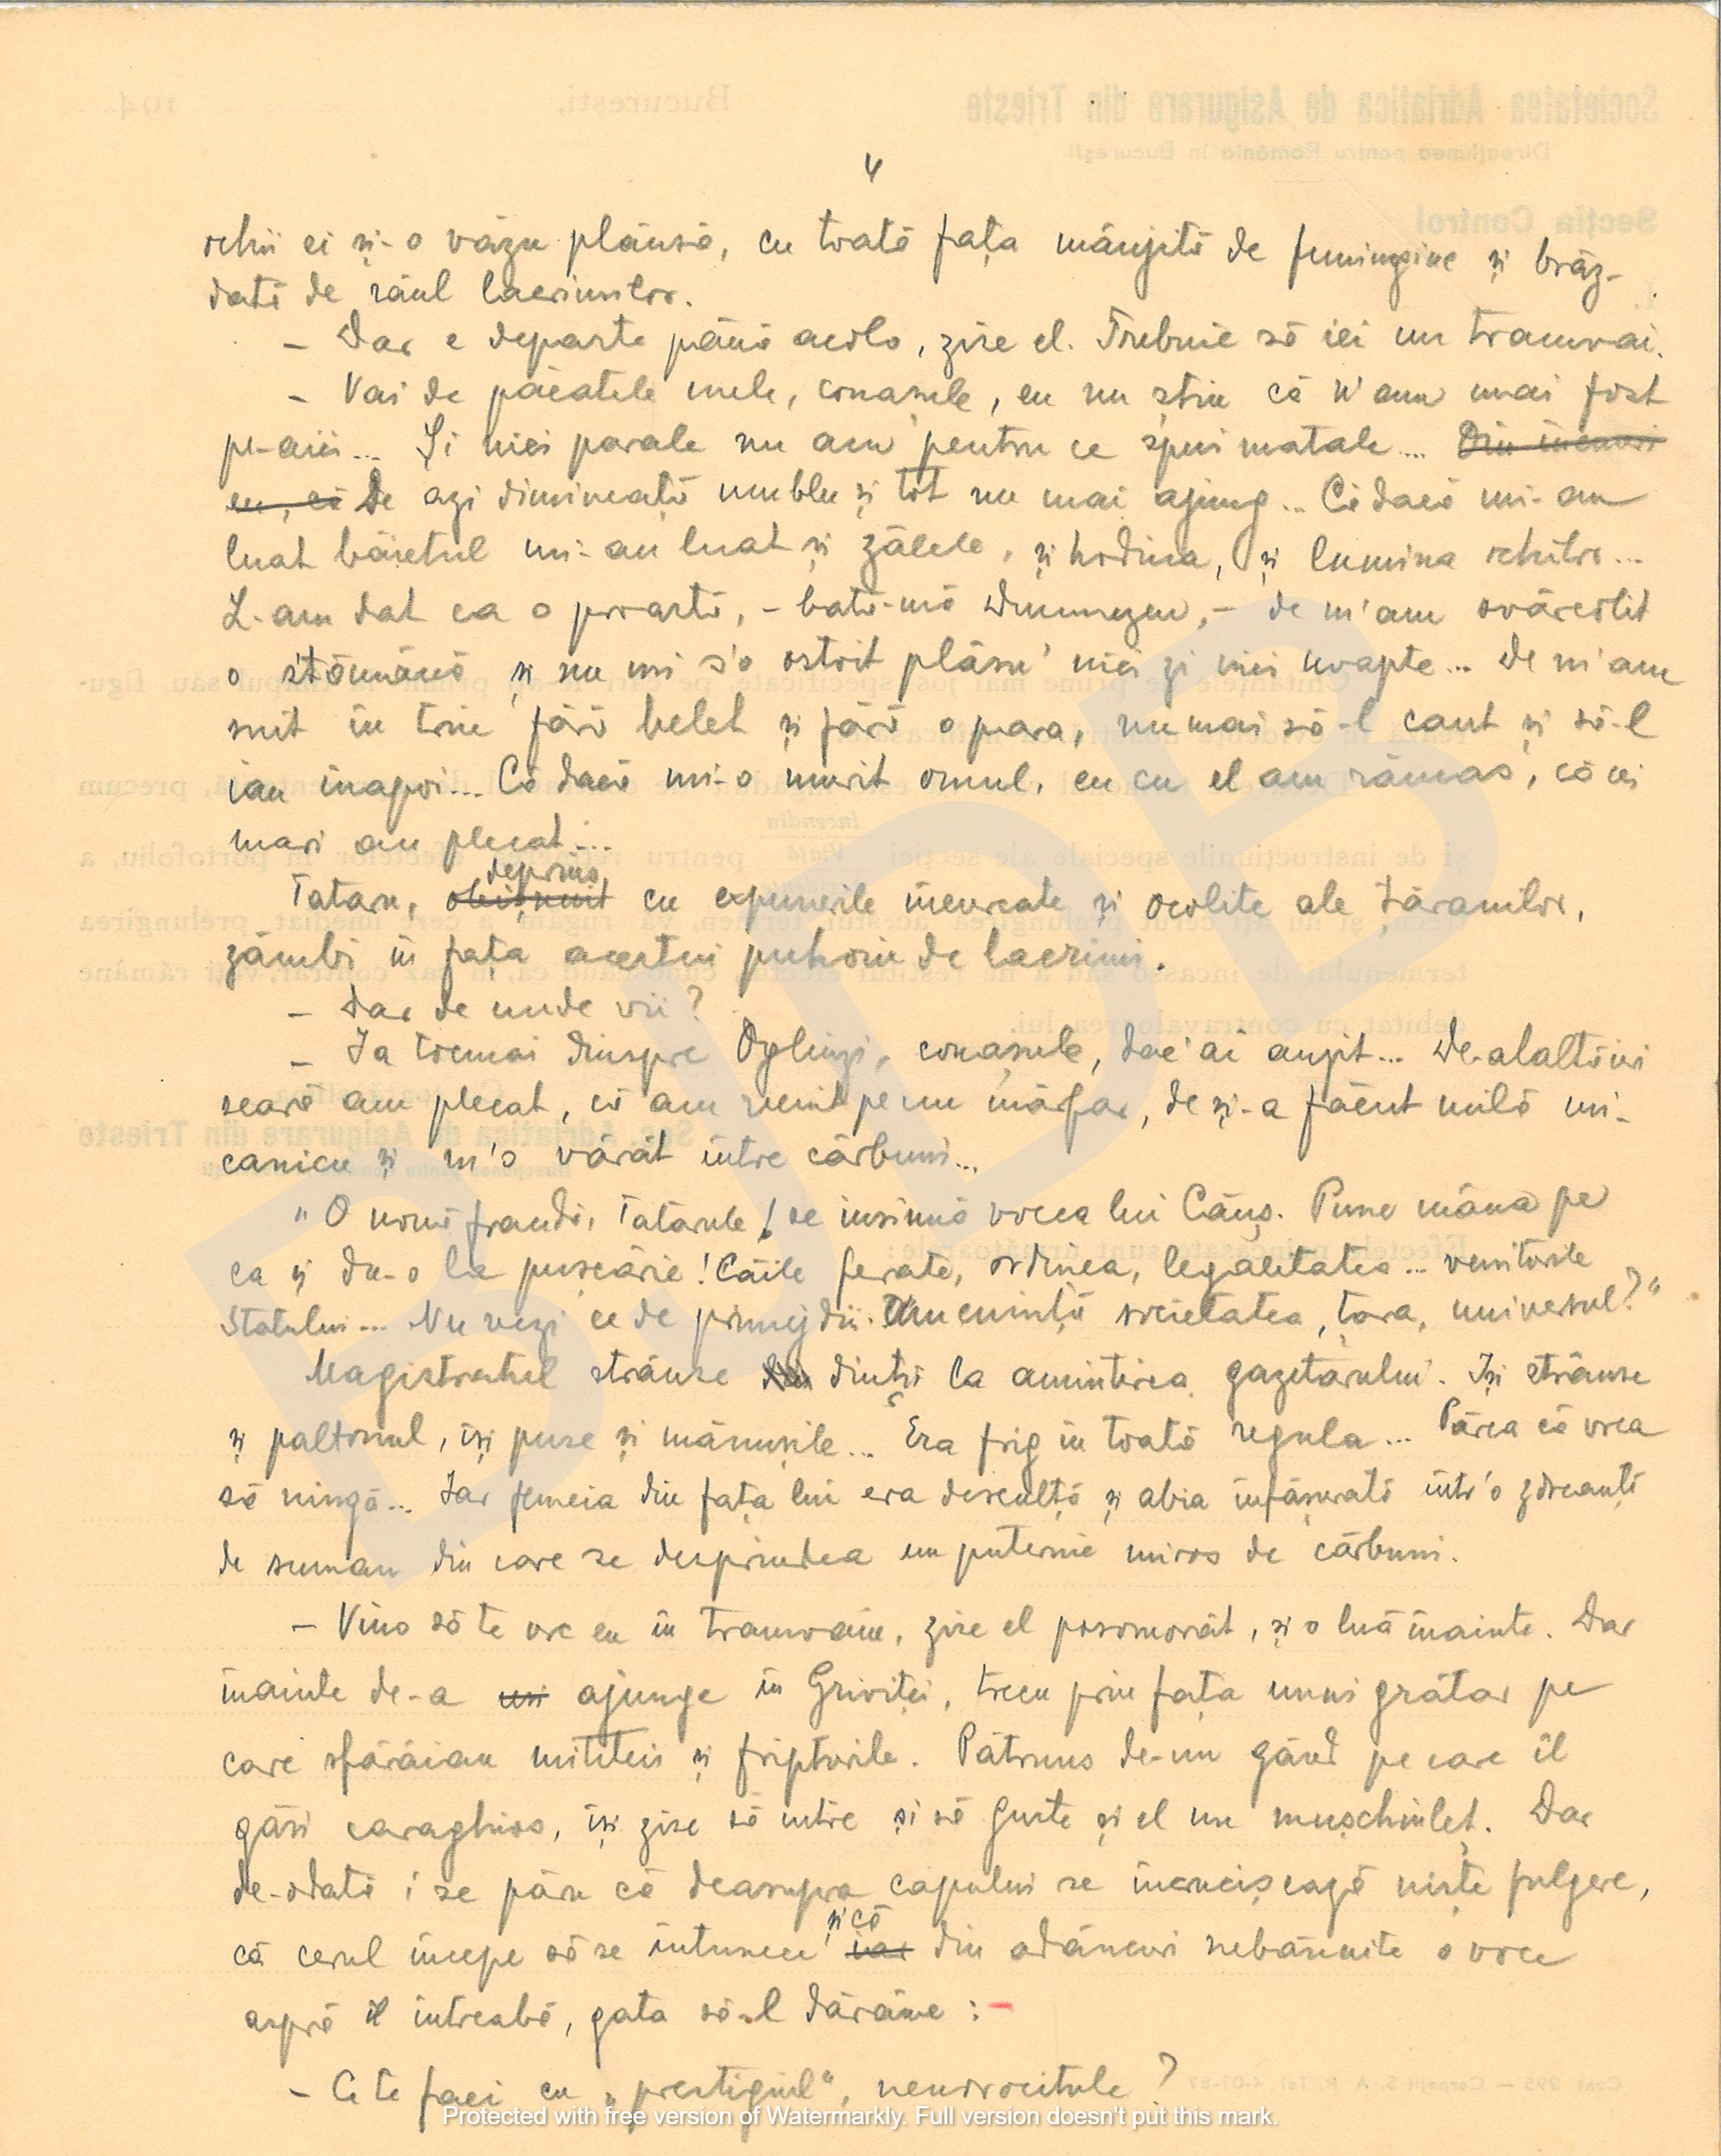 4
ochii ei și-o văzu plânsă, cu toată fața mânjită de funingine și brăz-
dată de râul lacrimilor.
– Dar e departe până acolo, zise el. Trebuie să iei un tramvai.
– Vai de păcatele mele, conașule, eu nu știu că n'am mai fost
pe-aici... Și nici parale nu am pentru ce spui matale... Din
eu, că De azi dimineață umblu și tot nu mai ajung... Că dacă mi-au
luat băietul mi-au luat și zâlele, și hodina, și lumina ochilor...
L-am dat ca o proastă, – bată-mă Dumnezeu, – de m'am svârcolit
o stămână și nu mi s'o ostoit plânsu' nici zi nici noapte... De m'am
suit în trin fără belet și fără o para, numai să-l caut și să-l
iau înapoi... Că dacă mi-o murit omul, eu cu el am rămas, că cei
mari au plecat...
deprins
Tataru, obișnuit cu expunerile încurcate și ocolite ale țăranilor,
zâmbi în fața acestui puhoiu de lacrimi.
– Dar de unde vii?
– Ia tocmai dinspre Oglinzi, conașule, dac'ai auzit... De-alaltăieri
seară am plecat, că am venit pe un mărfar, de și-a făcut milă mi-
canicu și m'o vârât între cărbuni...
"O nouă fraudă, Tatarule! se insinuă vocea lui Cânș. Pune mâna pe
ea și du-o la pușcărie! Căile ferate, ordinea, legalitatea... veniturile
Statului... Nu vezi ce de primejdii. Amenință societatea, țara, universul?"
Magistratul strânse din dinți la amintirea gazetarului. Iși strânse
și paltonul, își puse și mănușile... Era frig în toată regula... Părea că vrea
să ningă... Iar femeia din fața lui era desculță și abia înfășurată într'o zdreanță
de suman din care se desprindea un puternic miros de cărbuni.
– Vino să te urc eu în tramvaiu, zise el posomorât, și o luă înainte. Dar
înainte de-a ajunge în Griviței, trecu prin fața unui grătar pe
care sfârâiau mititeii și fripturile. Pătruns de-un gând pe care îl
găsi caraghios, își zise să intre și să guste și el un mușchiuleț. Dar
de-odată i se păru că deasupra capului se încrucișează niște fulgere,
și că
că cerul începe să se întunece iar din adâncuri nebănuite o voce
aspră îl întreabă, gata să-l dărâme :
– Ce te faci cu „prestigiul“, nenorocitule?
Societatea Adriatica de Asigurare din Trieste
București,
194
Direcțiunea pentru România în București
Secția Control
BJDB
Protected with free version of Watermarkly. Full version doesn't put this mark.